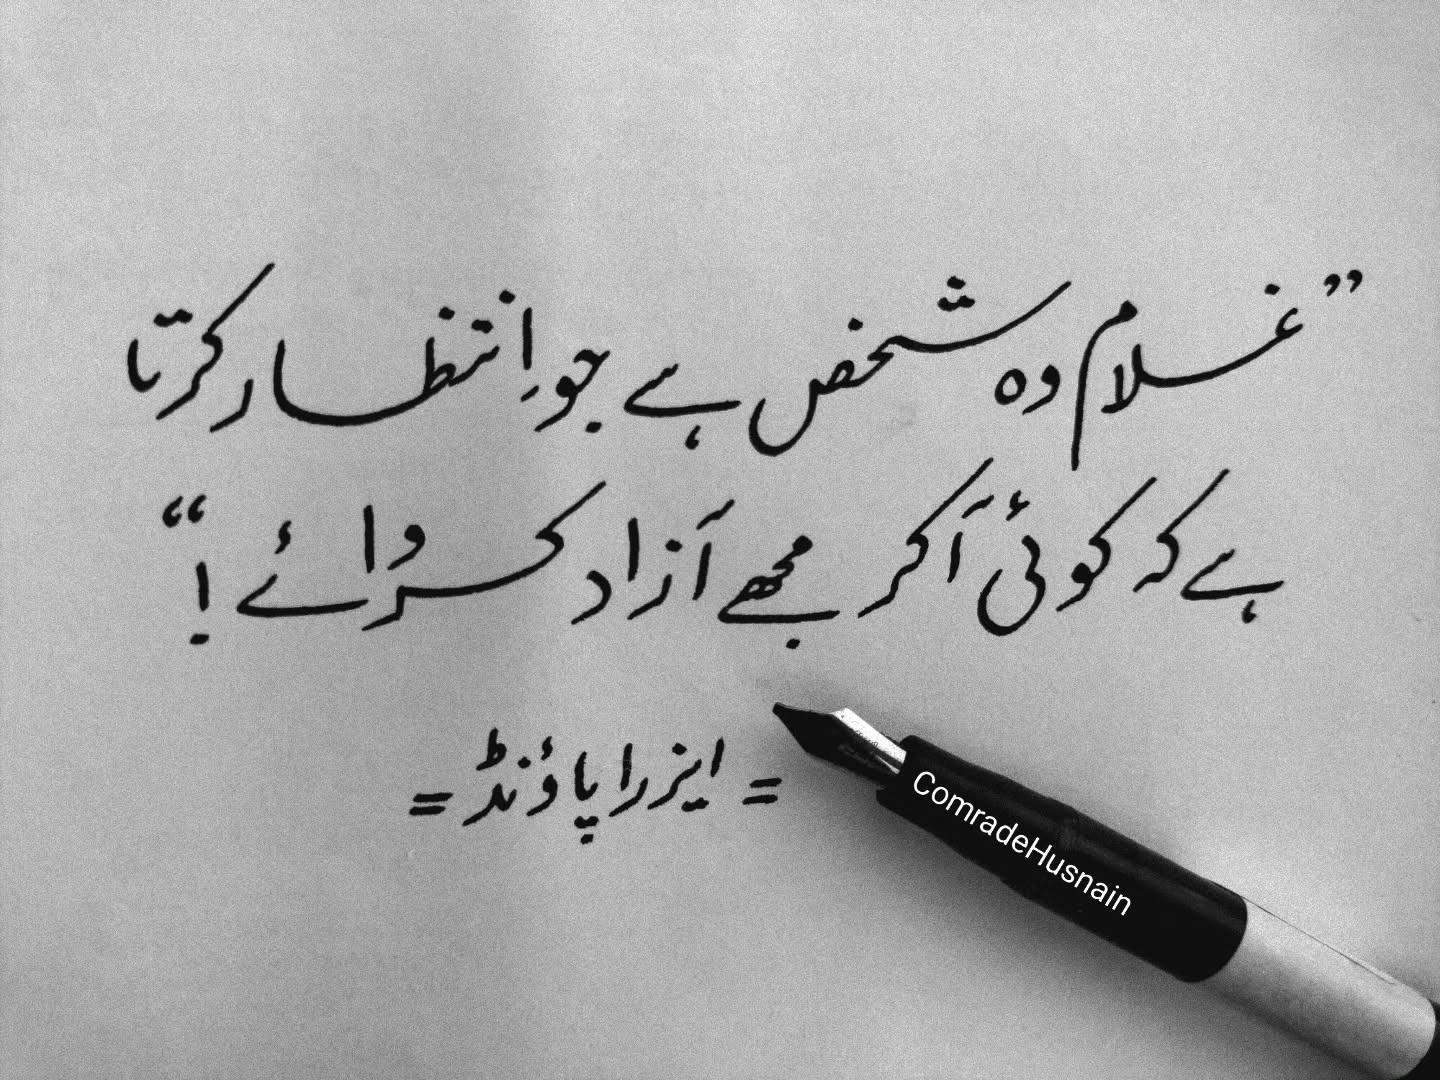 ”غلام وہ شخص ہے جو انتظار کرتا
ہے کہ کوئی آکر مجھے آزاد کروائے !“
= ایزرا پاؤنڈ =
ComradeHusnain